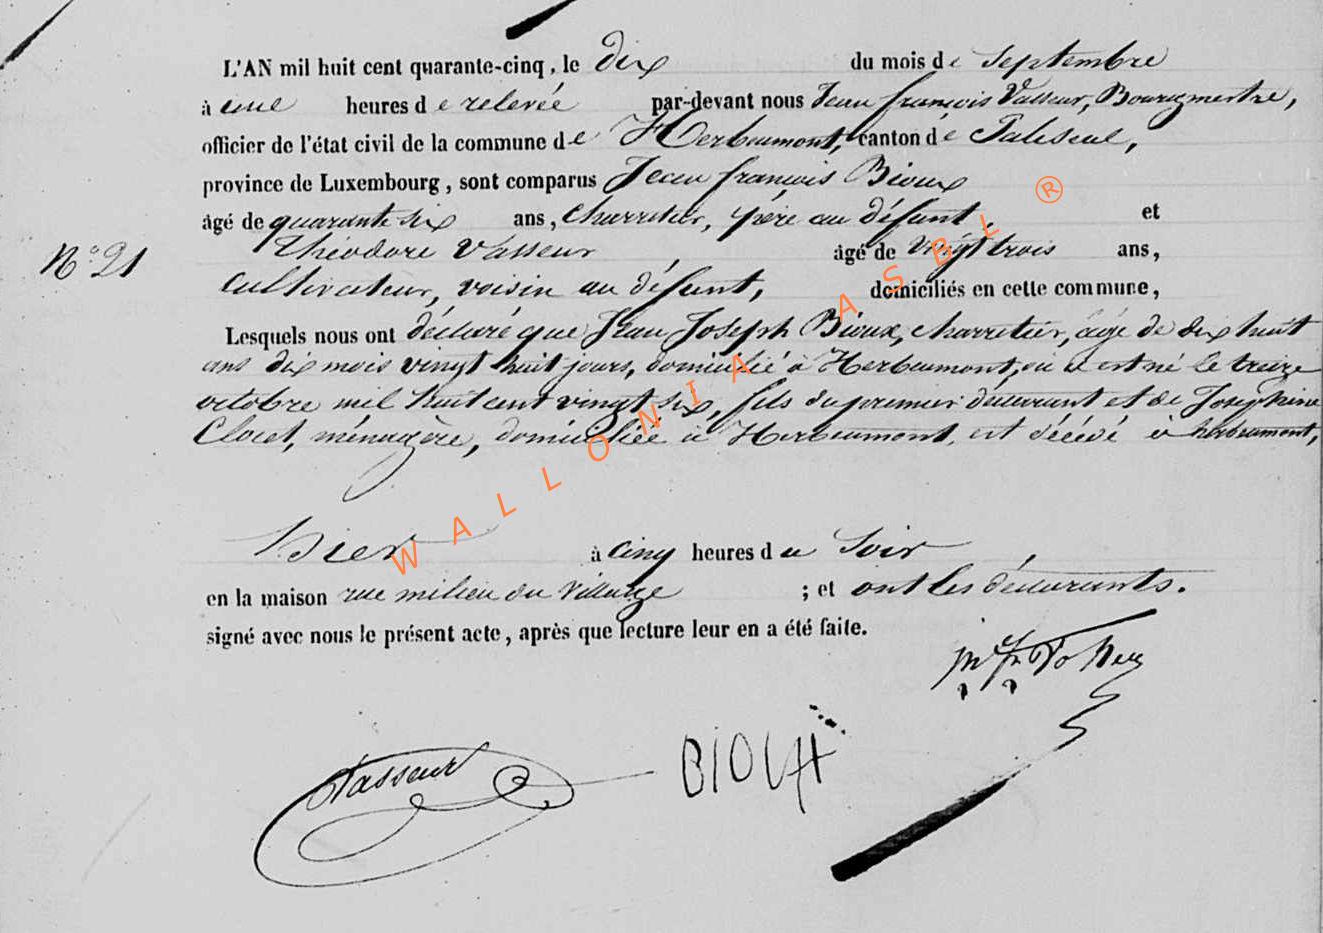 L'AN mil huit cent quarante-cinq, le dix du mois de Septembre
à une heures de relevée par-devant nous Jean françois Vasseur, Bourgmestre,
officier de l'état civil de la commune de Herbeumont, canton de Paliseul,
province de Luxembourg, sont comparus Jean françois Bioux
âgé de quarante six ans, charretier, père au défunt et
N° 21
Théodore Vasseur âgé de vingt trois ans,
cultivateur, voisin au défunt, domiciliés en cette commune,
Lesquels nous ont déclaré que Jean Joseph Bioux, charretier, âgé de dix huit
ans dix mois vingt huit jours, domicilié à Herbeumont, où il est né le treize
octobre mil huit cent vingt six, fils du premier déclarant et de Josephine
Clocet, ménagère, domiciliée à Herbeumont, est décédé à herbeumont,
hier à cinq heures du Soir
en la maison rue milieu du Village ; et ont les déclarants.
signé avec nous le présent acte, après que lecture leur en a été faite.
Vasseur
BIOUX
WALLONIA ASBL ®